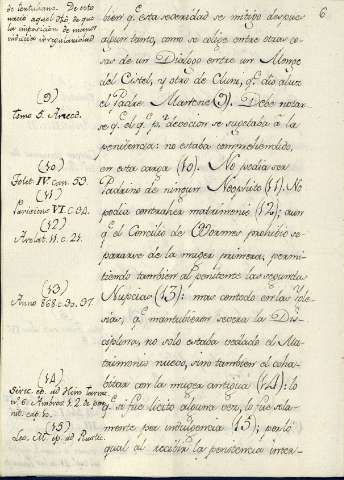 6
de tertuliano. De esto
nació aquel dho, de que
la imposicion de manos
indicia irregularidad
(9)
Tomo 5. Anecd.
(10)
Tolet. IV. can. 53.
(11)
Parisiens VI. c. 34.
(12)
Arelat. II. c. 21.
(13)
Anno 868. c. 30. 37.
(14)
Siric. ep. ad Him. Tarrac.
n. 6. Ambros. l. 2. de poe-
nit. cap. 10.
(15)
Leo. M. ep. ad Rustic.
bien q.e esta severidad se mitigó despues
algun tanto, como se colige entre otras co-
sas de un Dialogo entre un Monge
del Cistel, y otro de Cluni, q.e dió aluz
el Padre Martene (9). Debe notar-
se q.e el q.e p.r devocion se sujetaba á la
penitencia: no estaba comprehendido,
en esta carga (10). No podia ser
Padrino de ningun Neophito (11). No
podia contraher matrimonio (12); aun
q.e el Concilio de Wormes prohibió se-
pararse de la muger primera, permi-
tiendo tambien al penitente las segundas
Nupcias (13): mas contodo en las Ygle-
sias, q.e mantubieron severa la Dis-
ciplina, no solo estaba vedado el Ma-
trimonio nuevo, sino tambien el coha-
bitar con la muger antigua (14): lo
q.e si fue licito alguna vez, lo fue sola-
mente por indulgencia (15); por lo
qual al recibir la penitencia inter-